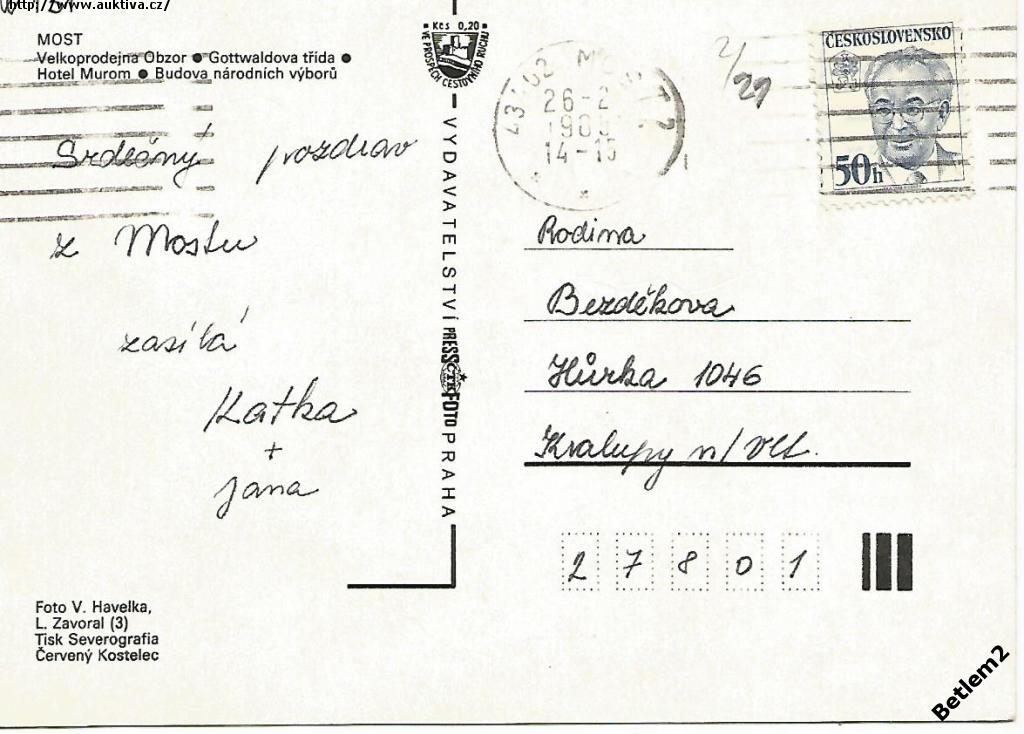 http://www.auktiva.cz/
MOST
Velkoprodejna Obzor ● Gottwaldova třída ●
Hotel Murom ● Budova národních výborů
Srdečný pozdrav
z Mostu
zasílá
Katka
+
Jana
Foto V. Havelka,
L. Zavoral (3)
Tisk Severografia
Červený Kostelec
Kčs 0,20
VE PROSPĚCH CESTOVNÍHO RUCHU
VYDAVATELSTVÍ PRESSFOTO PRAHA
ČTK
26-2
14-15
2/21
ČESKOSLOVENSKO
50h
Rodina
Bezděkova
Hůrka 1046
Kralupy n/Vlt.
27801
Betlem2